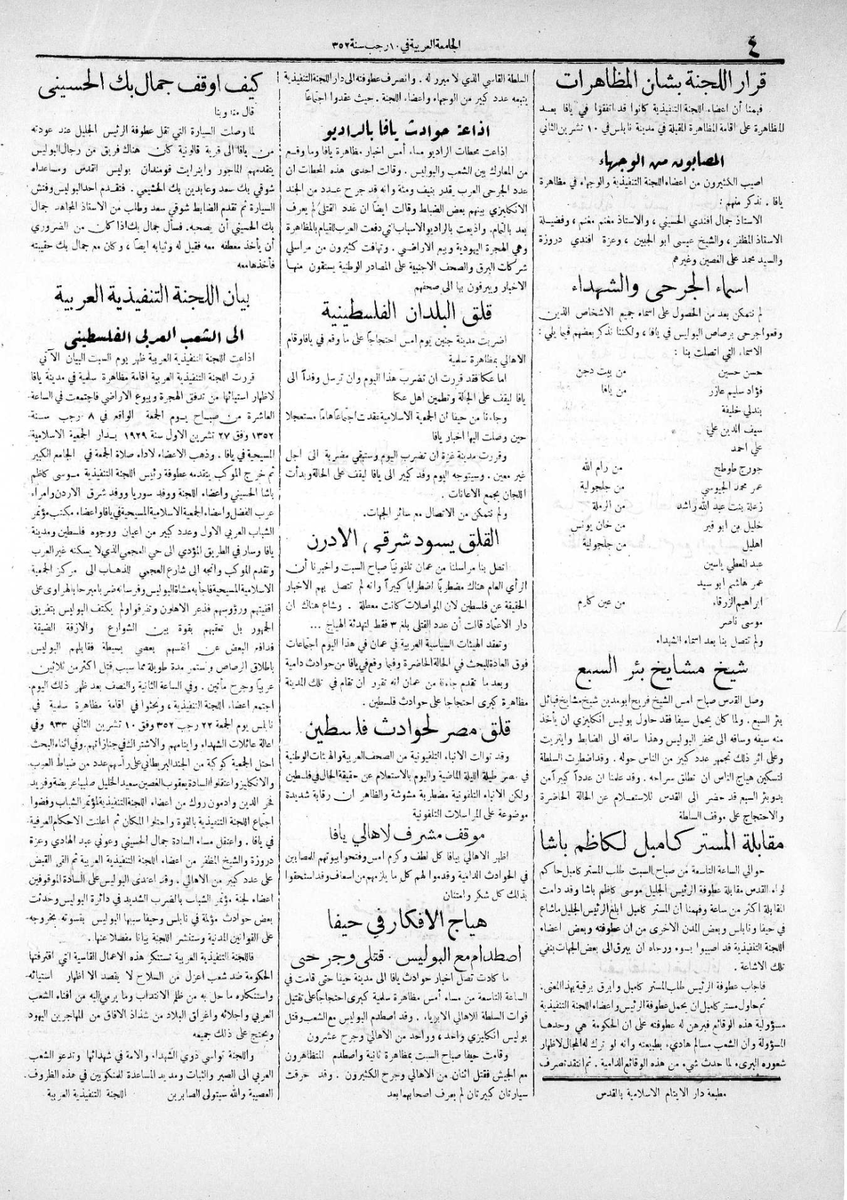 ٤
الجامعة العربية في ١٠ رجب سنة ٣٥٢
قرار اللجنة بشان المظاهرات
فهمنا أن اعضاء اللجنة التنفيذية كانوا قد اتفقوا في يافا بعد
المظاهرة على اقامة المظاهرة المقبلة في مدينة نابلس في ١٠ تشرين الثاني
المصابون من الوجهاء
اصيب الكثيرون من اعضاء اللجنة التنفيذية والوجهاء في مظاهرة
يافا . نذكر منهم :
الاستاذ جمال افندي الحسيني ، والاستاذ مغنم مغنم ، وفضيلة
الاستاذ المظفر ، والشيخ عيسى ابو الجبين ، وعزة افندي دروزة
والسيد محمد علي الغصين وغيرهم
اسماء الجرحى والشهداء
لم نتمكن بعد من الحصول على اسماء جميع الاشخاص الذين
وقعوا جرحى برصاص البوليس في يافا ، ولكننا نذكر بعضهم فيما يلي :
الاسماء التي اتصلت بنا :
حسن حسين من بيت دجن
فؤاد سليم عازر من يافا
بندلي خليفة
سيف الدين علي
علي احمد
جورج طوطح من رام الله
عمر محمد الجيوسي من جلجولية
زعلة بنت عبد الله راشد من الرملة
خليل بن ابو قبر من خان يونس
اهليل من جلجولية
عبد المعطي ياسين
عمر هاشم ابو سيد
ابراهيم الزرقاء من عين كارم
موسى ناصر
ولم تتصل بنا بعد اسماء الشهداء
شيخ مشايخ بئر السبع
وصل القدس صباح امس الشيخ فريح ابو مدين شيخ مشايخ قبائل
بئر السبع . ولما كان يحمل سيفا فقد حاول بوليس انكليزي ان يأخذ
منه سيفه وساقه الى مخفر البوليس وهذا ساقه الى الضابط وايتريت
وعلى اثر ذلك تجمهر عدد كبير من الناس حوله . وقد اضطرت السلطة
لتسكين هياج الناس ان تطلق سراحه . وقد علمنا ان عدداً كبيراً من
بدو بئر السبع قد حضر الى القدس للاستعلام عن الحالة الحاضرة
والاحتجاج على موقف السلطة
مقابلة المستر كامبل لكاظم باشا
حوالي الساعة التاسعة من صباح السبت طلب المستر كامبل حاكم
لواء القدس مقابلة عطوفة الرئيس الجليل موسى كاظم باشا وقد دامت
المقابلة اكثر من ساعة وفهمنا أن المستر كامبل ابلغ الرئيس الجليل ماشاع
في حيفا ونابلس وبعض المدن الاخرى من ان عطوفته وبعض اعضاء
اللجنة التنفيذية قد اصيبوا بسوء ورجاه ان يبرق الى بعض الجهات بنفي
تلك الاشاعة .
فاجاب عطوفة الرئيس طلب المستر كامبل وابرق برقية بهذا المعنى .
ثم حاول مستر كامبل ان يحمل عطوفة الرئيس واعضاء اللجنة التنفيذية
مسؤولية هذه الوقائع فبرهن له عطوفته على ان الحكومة هي وحدها
المسؤولة وان الشعب مسالم هادي، بطبيعته وانه لو ترك له المجال لاظهار
شعوره البريء لما حدث شيء من هذه الوقائع الدامية . ثم انتقد تصرف
مطبعة دار الايتام الاسلامية بالقدس
السلطة القاسي الذي لا مبرر له . وانصرف عطوفته الى دار اللجنة التنفيذية
يتبعه عدد كبير من الوجهاء واعضاء اللجنة . حيث عقدوا اجتماعاً
اذاعة حوادث يافا بالراديو
اذاعت محطات الراديو مساء أمس اخبار مظاهرة يافا وما وقع فيها
من المعارك بين الشعب والبوليس . وقالت احدى هذه المحطات ان
عدد الجرحى العرب يقدر بنيف ومئة وانه قد جرح عدد من الجند
الانكليزي بينهم بعض الضباط وقالت ايضا ان عدد القتلى لم يعرف
بعد بالتمام . واذيعت بالراديو الاسباب التي دفعت العرب للقيام بالمظاهرة
وهي الهجرة اليهودية وبيع الاراضي . وتهافت كثيرون من مراسلي
شركات البرق والصحف الاجنبية على المصادر الوطنية يستقون منها
الاخبار ويبرقون بها الى صحفهم
قلق البلدان الفلسطينية
اضربت مدينة جنين يوم امس احتجاجا على ما وقع في يافا وقام
الاهالي بمظاهرة سلمية
اما عكا فقد قررت ان تضرب هذا اليوم وان ترسل وفداً الى
يافا ليقف على الحالة وتطمين اهل عكا
وجاءنا من حيفا ان الجمعية الاسلامية عقدت اجتماعاً هاما مستعجلا
حين وصلت اليها اخبار يافا
وقررت مدينة غزة ان تضرب اليوم وستبقى مضربة الى اجل
غير معين . وسيتوجه اليوم وفد كبير الى يافا ليقف على الحالة وبدأت
اللجان بجمع الاعانات .
ولم نتمكن من الاتصال مع سائر الجهات .
القلق يسود شرقي الاردن
اتصل بنا مراسلنا من عمان تلفونيا صباح السبت واخبرنا أن
الرأي العام هناك مضطرباً اضطرابا كبيراً وانه لم تتصل بهم الاخبار
الحقيقة عن فلسطين لان المواصلات كانت معطلة . وشاع هناك ان
دار الاعتماد قالت أن عدد القتلى بلغ ٣ فقط لتهدئة الهياج ...
وتعقد الهيئات السياسية العربية في عمان في هذا اليوم اجتماعات
فوق العادة للبحث في الحالة الحاضرة وفيما وقع في يافا من حوادث دامية
وبعد ما تقدم جاءنا من عمان انه تقرر أن تقام في تلك المدينة
مظاهرة كبرى احتجاجا على حوادث فلسطين .
قلق مصر لحوادث فلسطين
وقد توالت الانباء التلفونية من الصحف العربية والهيئات الوطنية
في مصر طيلة الليلة الماضية واليوم بالاستعلام عن حقيقة الحال في فلسطين
ولكن الانباء التلفونية مضطربة مشوشة والظاهر ان رقابة شديدة
موضوعة على المراسلات التلفونية
موقف مشرف لاهالي يافا
اظهر الاهالي بيافا كل لطف وكرم امس وفتحوا بيوتهم للمصابين
في الحوادث الدامية وقدموا لهم كل ما يلزمهم من اسعاف وقد استحقوا
بذلك كل شكر وامتنان
هياج الافكار في حيفا
اصطدام مع البوليس . قتلى وجرحى
ما كادت تصل اخبار حوادث يافا الى مدينة حيفا حتى قامت في
الساعة التاسعة من مساء أمس مظاهرة سلمية كبرى احتجاجا على تقتيل
قوات السلطة الاهالي الابرياء . وقد اصطدم البوليس مع الشعب وقتل
بوليس انكليزي واحد ، وواحد من الاهالي وجرح عشرون
وقامت حيفا صباح السبت بمظاهرة ثانية واصطدم المتظاهرون
مع الجيش فقتل اثنان من الاهالي وجرح الكثيرون . وقد حرقت
سيارتان كبيرتان لم يعرف اصحابهما بعد
كيف اوقف جمال بك الحسيني
قال مندوبنا
لما وصلت السيارة التي تقل عطوفة الرئيس الجليل عند عودته
من يافا الى قرية قالونية كان هناك فريق من رجال البوليس
يتقدمهم الماجور وايتريت قومندان بوليس القدس ومساعداه
شوقي بك سعد وعابدين بك الحشيمي . فتقدم احد البوليس وفتش
السيارة ثم تقدم الضابط شوقي سعد وطلب من الاستاذ المجاهد جمال
بك الحسيني أن يصحبه . فسأل جمال بك اذا كان من الضروري
أن يأخذ معطفه معه فقيل له وثيابه ايضا ، وكان مع جمال بك حقيبته
فأخذها معه
بيان اللجنة التنفيذية العربية
الى الشعب العربي الفلسطيني
اذاعت اللجنة التنفيذية العربية ظهر يوم السبت البيان الآتي
قررت اللجنة التنفيذية العربية اقامة مظاهرة سلمية في مدينة يافا
لاظهار استيائها من تدفق الهجرة وبيوع الاراضي فاجتمعت في الساعة
العاشرة من صباح يوم الجمعة الواقع في ٨ رجب سنة
١٣٥٢ وفق ٢٧ تشرين الاول سنة ١٩٢٩ بدار الجمعية الاسلامية
المسيحية في يافا . وذهب الاعضاء لاداء صلاة الجمعة في الجامع الكبير
ثم خرج الموكب يتقدمه عطوفة رئيس اللجنة التنفيذية موسى كاظم
باشا الحسيني واعضاء اللجنة ووفد سوريا ووفد شرق الاردن وامراء
عرب الفضل واعضاء الجمعية الاسلامية المسيحية في يافا واعضاء مكتب مؤتمر
الشباب العربي الاول وعدد كبير من اعيان ووجوه فلسطين ومدينة
يافا وسار في الطريق المؤدي الى حي العجمي الذي لا يسكنه غير العرب
وتقدم الموكب واتجه الى شارع العجمي للذهاب الى مركز الجمعية
الاسلامية المسيحية فاجأه مشاة البوليس وفرسانه ضربا مبرحا بالهراوى على
اقفيتهم ورؤوسهم فذعر الاهلون وتفرقوا ولم يكتف البوليس بتفريق
الجمهور بل تعقبهم بقوة بين الشوارع والازقة الضيقة
فدافع البعض عن انفسهم بعصي بسيطة فقابلهم البوليس
باطلاق الرصاص واستمر مدة طويلة مما سبب قتل اكثر من ثلاثين
عربيا وجرح مأتين . وفي الساعة الثانية والنصف بعد ظهر ذلك اليوم
اجتمع اعضاء اللجنة التنفيذية ، وبحثوا في اقامة مظاهرة سلمية في
نابلس يوم الجمعة ٢٢ رجب ٣٥٢ وفق ١٠ تشرين الثاني ٩٣٣ وفي
اعالة عائلات الشهداء وايتامهم والاشتراك في جنازاتهم. وفي اثناء البحث
احتل الجمعية كوكبة من الجند البريطاني على رأسهم عدد من ضباط العرب
والانكليز واعتقلوا السادة يعقوب الغصين سعيد الخليل صليبا عريضة وفريد
فخر الدين وادمون روك من اعضاء اللجنة التنفيذية لمؤتمر الشباب وفضوا
اجتماع اللجنة التنفيذية بالقوة واحتلوا المكان ثم اعلنت الاحكام العرفية
في يافا . واعتقل مساء السادة جمال الحسيني وعوني عبد الهادي وعزة
دروزة والشيخ المظفر من اعضاء اللجنة التنفيذية العربية ثم القى القبض
على عدد كبير من الاهالي . وقد اعتدى البوليس على السادة الموقوفين
اعضاء لجنة مؤتمر الشباب بالضرب الشديد في دائرة البوليس وحدثت
بعض حوادث مؤلمة في نابلس وحيفا سببها البوليس بقسوته بخروجه
على القوانين المدنية وستنشر اللجنة بيانا مفصلا عنها .
فاللجنة التنفيذية العربية تستنكر هذه الاعمال القاسية التي اقترفتها
الحكومة ضد شعب اعزل من السلاح لا يقصد الا اظهار استيائه
واستنكاره ما حل به من ظلم الانتداب وما يرمي اليه من افناء الشعب
العربي واجلائه واغراق البلاد من شذاذ الآفاق من المهاجرين اليهود
وتحتج على ذلك جميعه
واللجنة تواسي ذوي الشهداء والامة في شهدائها وتدعو الشعب
العربي الى الصبر والثبات ومد يد المساعدة للمنكوبين في هذه الظروف
العصيبة والله سيتولى الصابرين اللجنة التنفيذية العربية